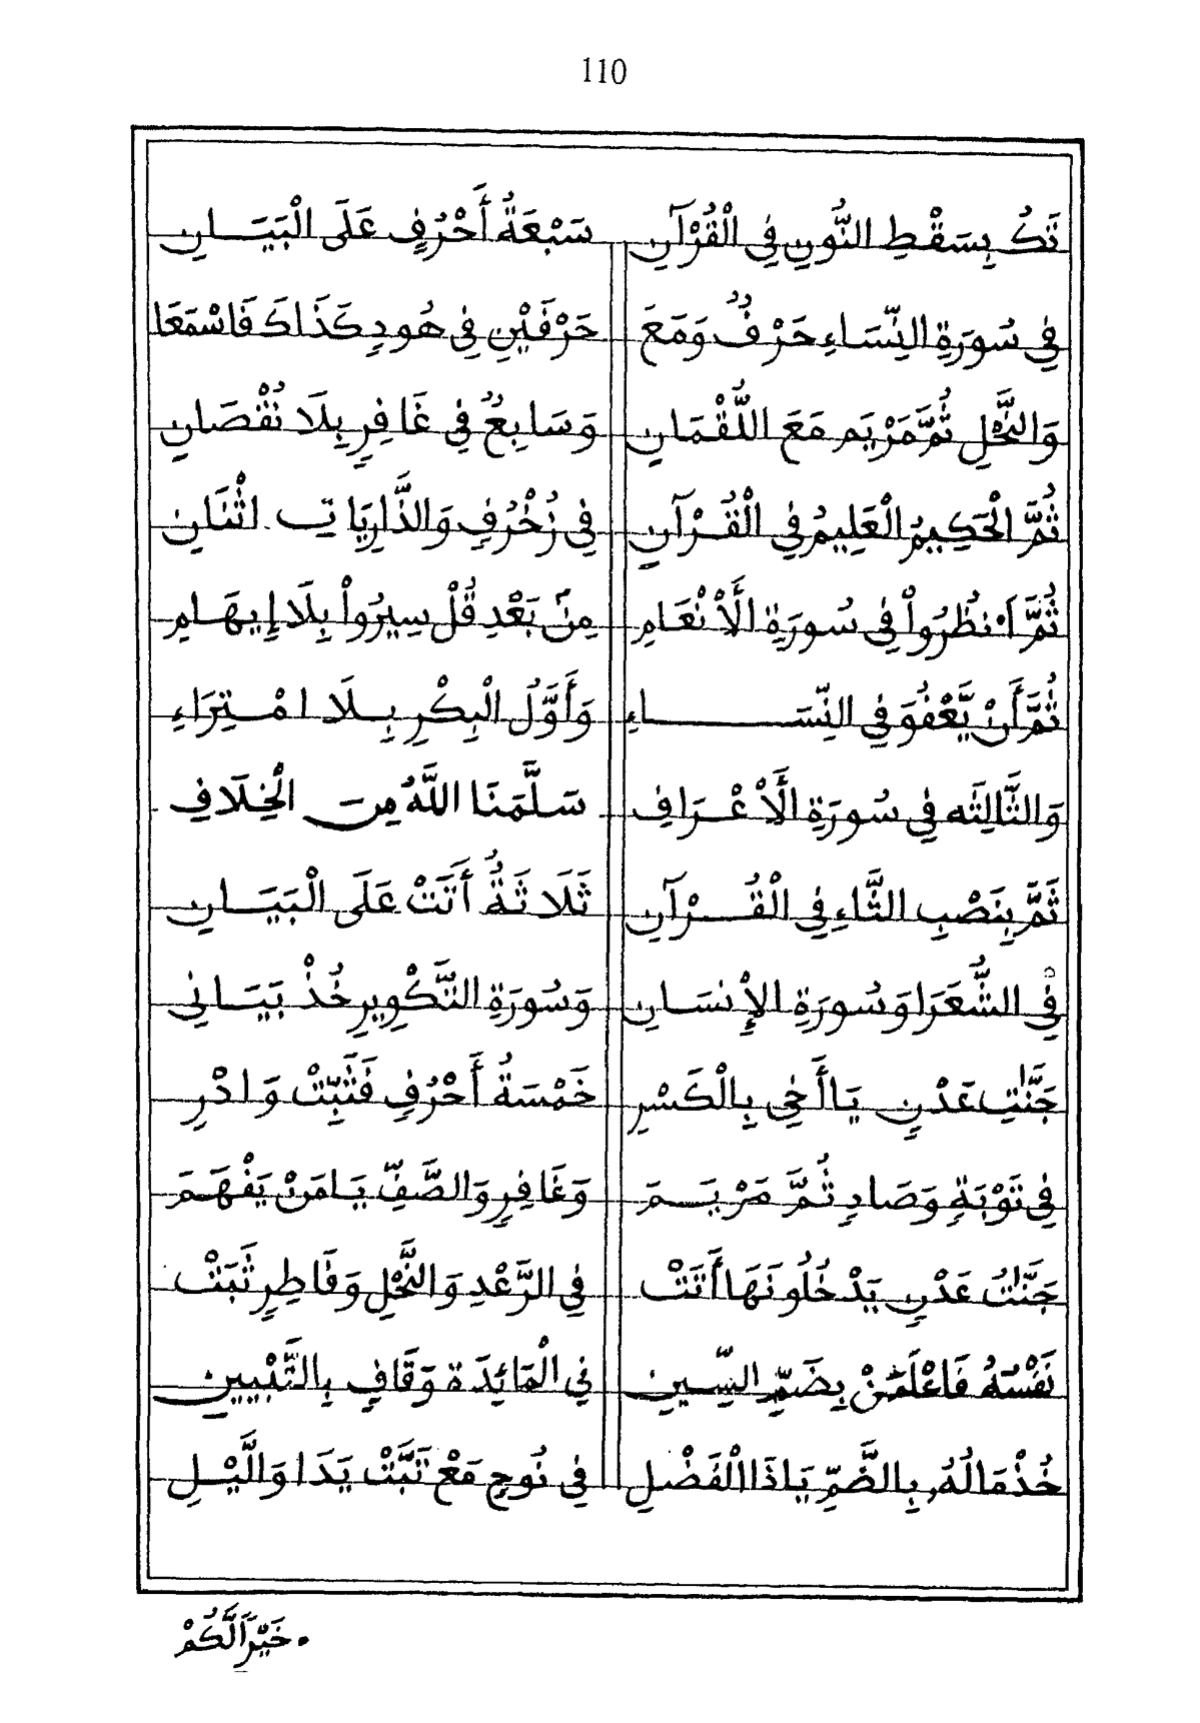 110
تَكُ بِسَقْطِ النُّونِ فِي الْقُرْآنِ سَبْعَةُ أَحْرُفٍ عَلَى الْبَيَـــانِ
فِي سُورَةِ النِّسَاءِ حَرْفٌ وَمَعَ حَرْفَيْنِ فِي هُودٍ كَذَاكَ فَاسْمَعَا
وَالنَّحْلِ ثُمَّ مَرْيَم مَعَ اللُّقْمَانِ وَسَابِعٌ فِي غَافِرٍ بِلَا نُقْصَانِ
ثُمَّ الْحَكِيمُ الْعَلِيمُ فِي الْقُرْآنِ فِي زُخْرُفٍ وَالذَّارِيَاتِ اثْنَانِ
ثُمَّ اَنظُرُواْ فِي سُورَةِ الَأْنْعَامِ مِنۢ بَعْدِ قُلْ سِيرُواْ بِلَا إِيهَـامِ
ثُمَّ أَنْ يَّعْفُوَ فِي النِّسَـــــاءِ وَأَوَّلُ الْبِكْرِ بِـلَا امْـتِرَاءِ
وَالثَّالِثَه فِي سُورَةِ الَأْعْـرَافِ سَلَّمَنَا اللَّهُ مِنَ الْخِلَافِ
ثَمَّ بِنَصْبِ الثَّاءِ فِي الْقُـــرْآنِ ثَلَاثَةُ أَتَتْ عَلَى الْبَيَــانِ
فِي الشُّعَرَا وَسُورَةِ الإِنسَـانِ وَسُورَةِ التَّكْوِيرِ خُذْ بَيَـانِي
جَنَّٰتِ عَدْنٍ يَاأَخِي بِالْكَسْرِ خَمْسَةُ أَحْرُفٍ فَثَبِّتْ وَادْرِ
فِي تَوْبَةٍ وَصَادٍ ثُمَّ مَرْيَـــمَ وَغَافِرٍ وَالصَّفِّ يَـامَنْ يَفْهَـمَ
جَنَّٰتُ عَدْنٍ يَدْخُلُونَهَا أَتَتْ فِي الرَّعْدِ وَالنَّحْلِ وَفَاطِرٍ ثَبَتْ
نَفْسُهُ فَاعْلَمَنْ بِضَمِّ السِّـينِ فِي الْمَائِدَةِ وَقَافٍ بِالتَّبْيِينِ
خُذْ مَالُهُ بِالضَّمِّ يَاذَا الْفَضْلِ فِي نُوحٍ مَعْ تَبَّتْ يَدَا وَالَّيْـلِ
خَيْرًا لَّكُمْ